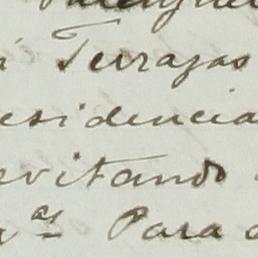 Terrazas
esidencia
evitando
as Para